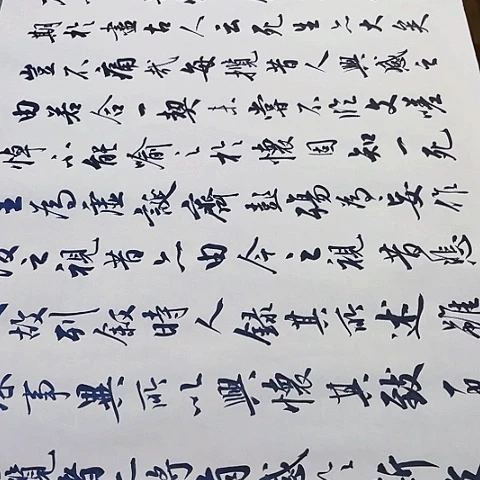 期於盡古人云死生亦大矣
豈不痛哉每攬昔人興感之
由若合一契未嘗不臨文嗟
悼不能喻之於懷固知一死
生為虛誕齊彭殤為妄作
後之視昔亦由今之視昔悲
故列叙時人錄其所述雖
事異所以興懷其致一
覽者亦將有感於斯